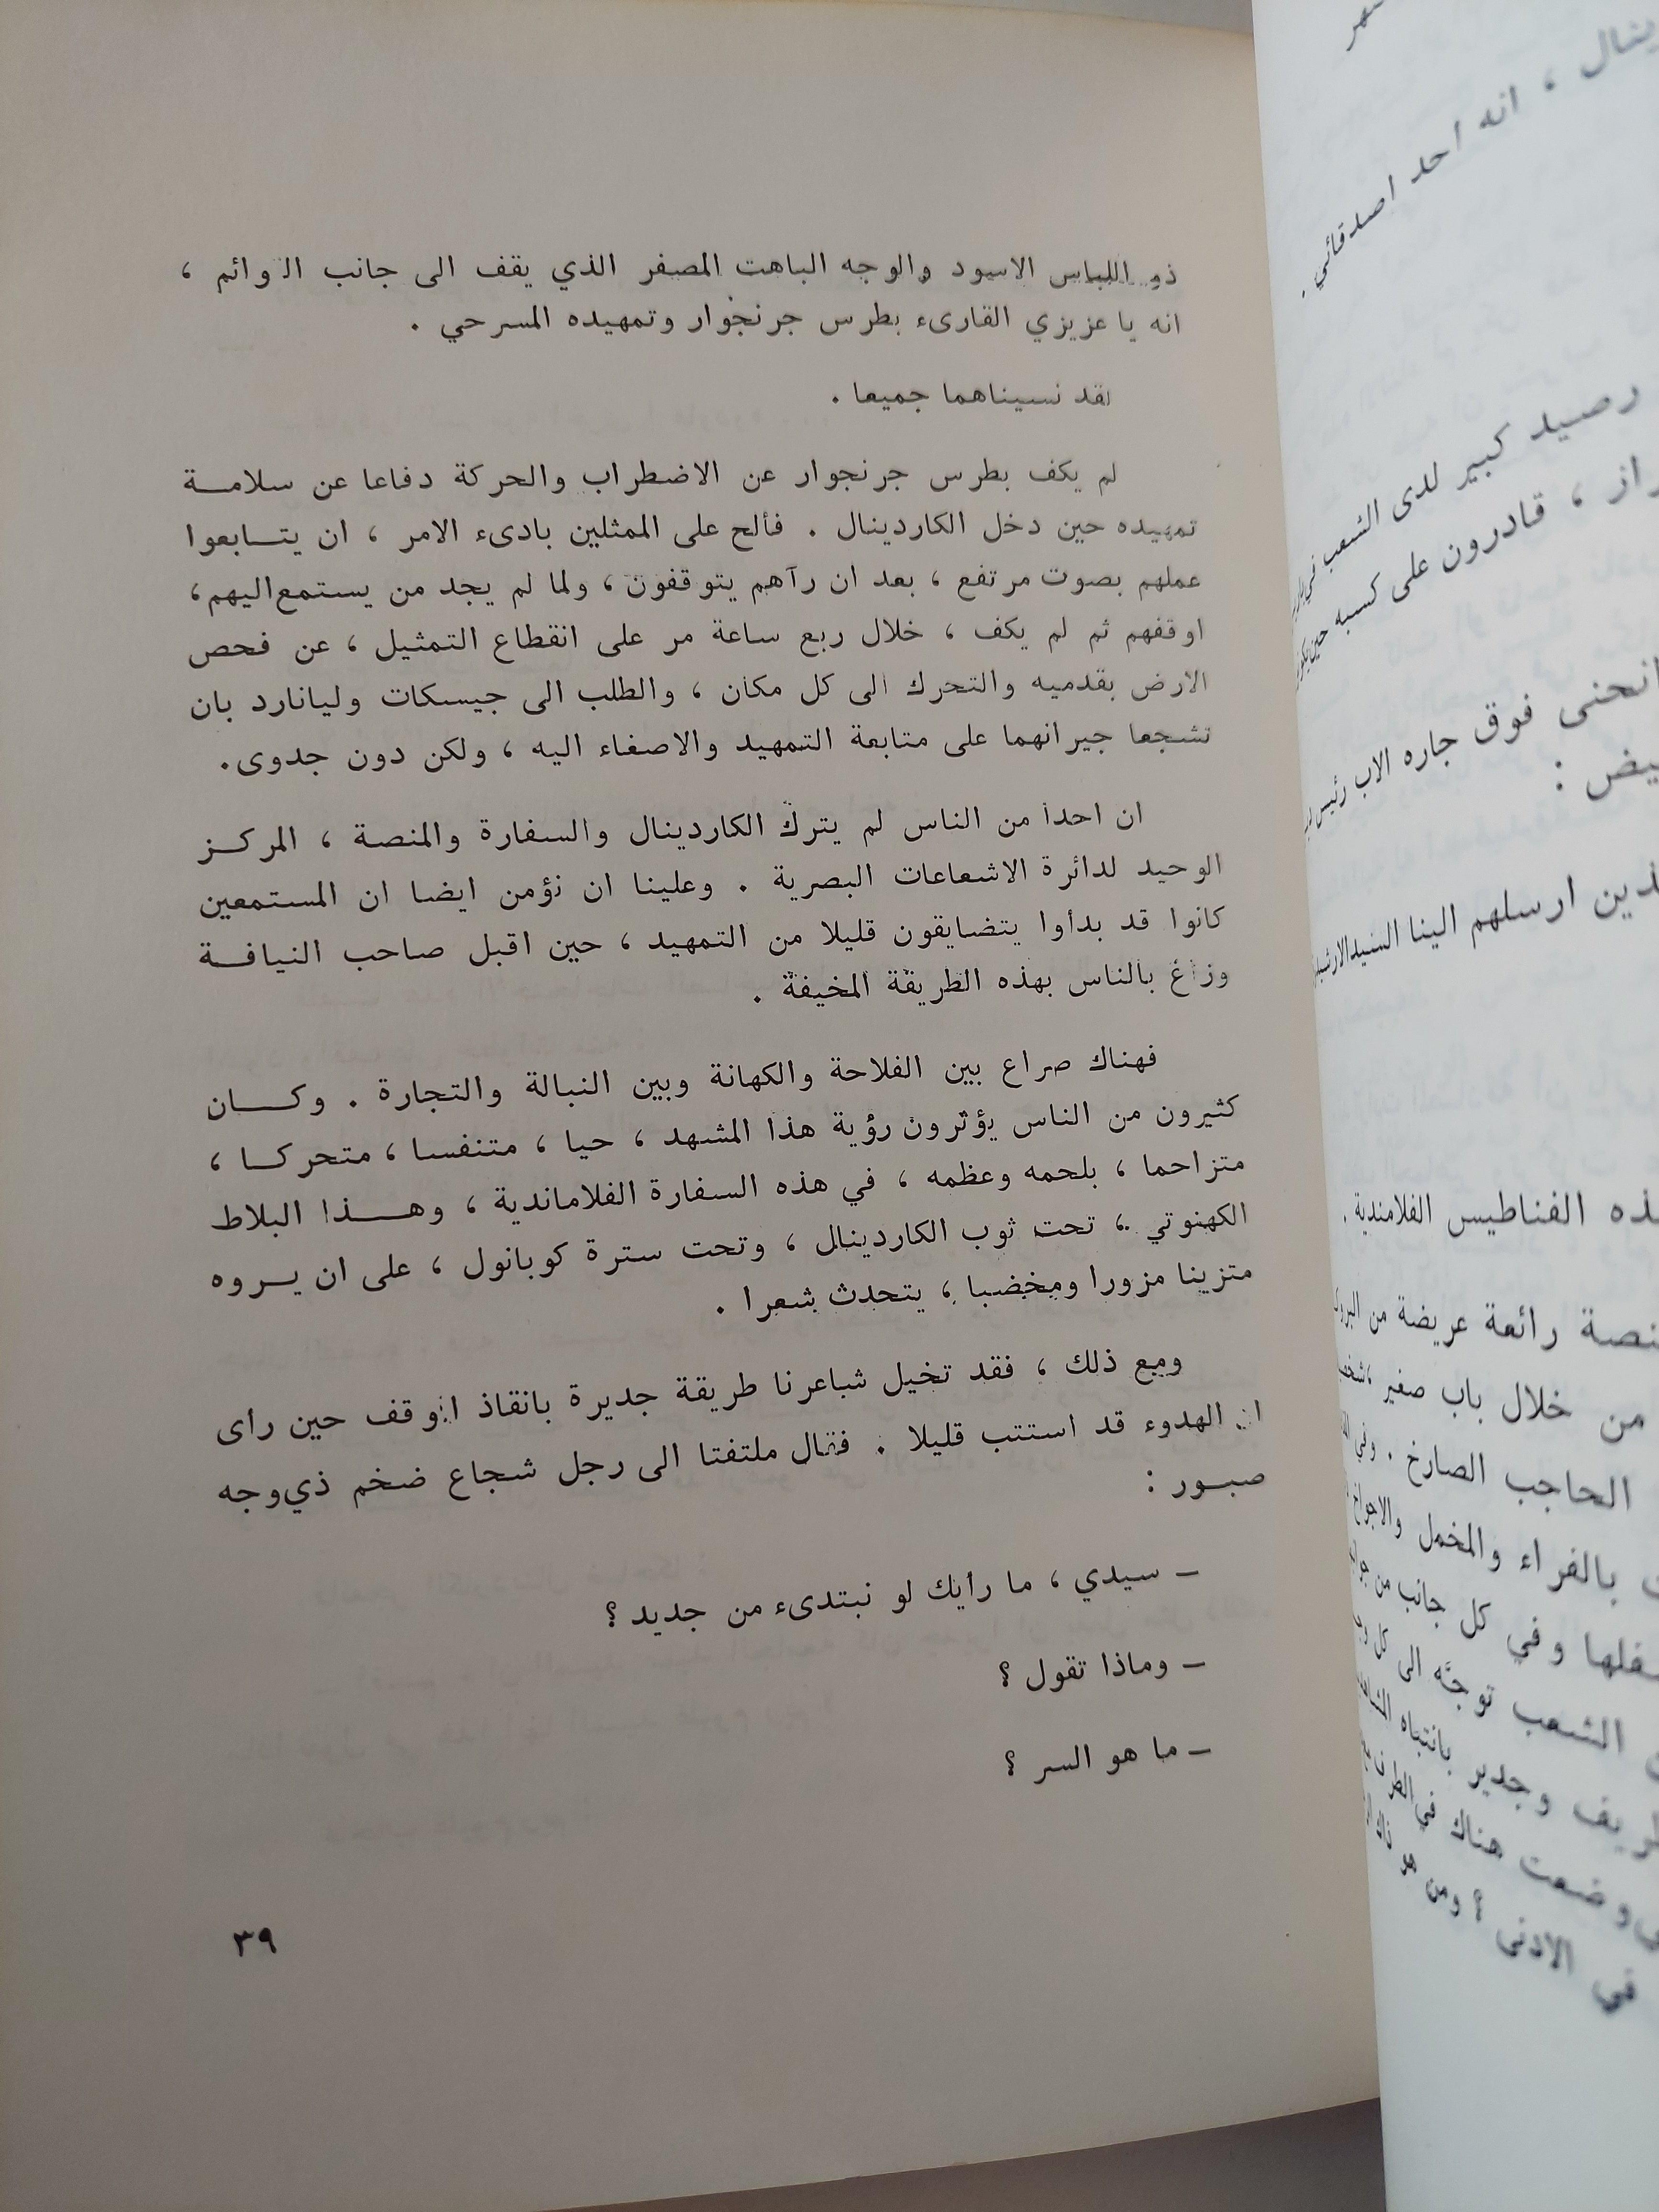 ذو اللباس الاسود والوجه الباهت المصفر الذي يقف الى جانب الوائم ،
انه يا عزيزي القارىء بطرس جرنجوار وتمهيده المسرحي .
لقد نسيناهما جميعا .
لم يكف بطرس جرنجوار عن الاضطراب والحركة دفاعا عن سلامة
تمهيده حين دخل الكاردينال . فألح على الممثلين بادىء الامر ، ان يتابعوا
عملهم بصوت مرتفع ، بعد ان رآهم يتوقفون ، ولما لم يجد من يستمع اليهم ،
اوقفهم ثم لم يكف ، خلال ربع ساعة مر على انقطاع التمثيل ، عن فحص
الارض بقدميه والتحرك الى كل مكان ، والطلب الى جيسكات وليانارد بان
تشجعا جيرانهما على متابعة التمهيد والاصغاء اليه ، ولكن دون جدوى .
ان احدا من الناس لم يترك الكاردينال والسفارة والمنصة ، المركز
الوحيد لدائرة الاشعاعات البصرية . وعلينا ان نؤمن ايضا ان المستمعين
كانوا قد بدأوا يتضايقون قليلا من التمهيد ، حين اقبل صاحب النيافة
وزاغ بالناس بهذه الطريقة المخيفة .
فهناك صراع بين الفلاحة والكهانة وبين النبالة والتجارة . وكان
كثيرون من الناس يؤثرون رؤية هذا المشهد ، حيا ، متنفسا ، متحركا ،
متزاحما ، بلحمه وعظمه ، في هذه السفارة الفلاماندية ، وهذا البلاط
الكهنوتي ، تحت ثوب الكاردينال ، وتحت سترة كوبانول ، على ان يروه
متزينا مزورا ومخضبا ، يتحدث شعرا .
ومع ذلك ، فقد تخيل شاعرنا طريقة جديرة بانقاذ الموقف حين رأى
ان الهدوء قد استتب قليلا . فقال ملتفتا الى رجل شجاع ضخم ذي وجه
صبور :
– سيدي ، ما رأيك لو نبتدىء من جديد ؟
– وماذا تقول ؟
– ما هو السر ؟
٣٩
ينال ، انه احد اصدقائي .
رصيد كبير لدى الشعب في
راز ، قادرون على كسبه حين
انحنى فوق جاره الاب رئيس
يض :
ذين ارسلهم الينا السيد
ذه الفناطيس الفلامندية .
نصة رائعة عريضة من
من خلال باب صغير ،
الحاجب الصارخ . وفي
بالفراء والمخمل
فلها وفي كل جانب من
الشعب توجه الى كل
ريف وجدير بانتباه
وضعت هناك في الطرف
في الادنى ؟ ومن هو ذاك